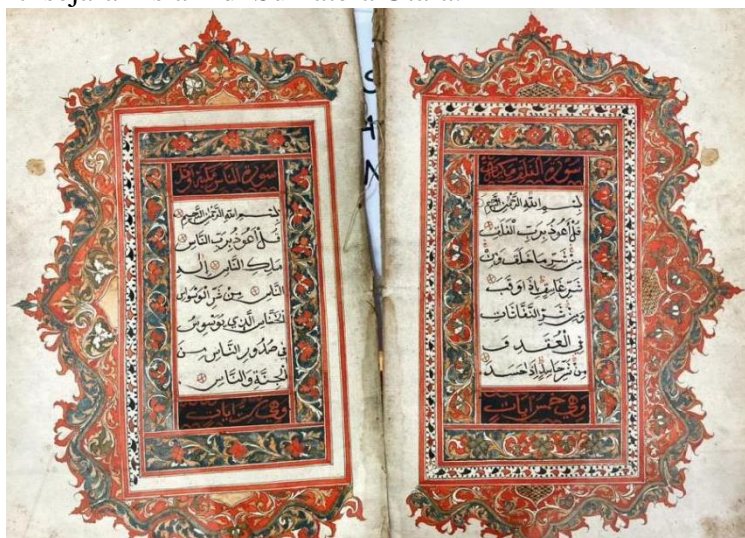 Sumatera Utara.
سورة الفلق مكية
بِسْمِ اللهِ الرَّحْمٰنِ الرَّحِيْمِ
قُلْ اَعُوذُ بِرَبِّ الْفَلَقِ
مِنْ شَرِّ مَا خَلَقَ وَمِنْ
شَرِّ غَاسِقٍ اِذَا وَقَبَ
وَمِنْ شَرِّ النَّفَّاثَاتِ
فِي الْعُقَدِ وَ
مِنْ شَرِّ حَاسِدٍ اِذَا حَسَدَ
وهي خمس ايات
سورة الناس مكية
بِسْمِ اللهِ الرَّحْمٰنِ الرَّحِيْمِ
قُلْ اَعُوذُ بِرَبِّ النَّاسِ
مَلِكِ النَّاسِ اِلٰهِ
النَّاسِ مِنْ شَرِّ الْوَسْوَاسِ
الْخَنَّاسِ الَّذِي يُوَسْوِسُ
فِي صُدُورِ النَّاسِ مِنَ
الْجِنَّةِ وَالنَّاسِ
وهي ست ايات